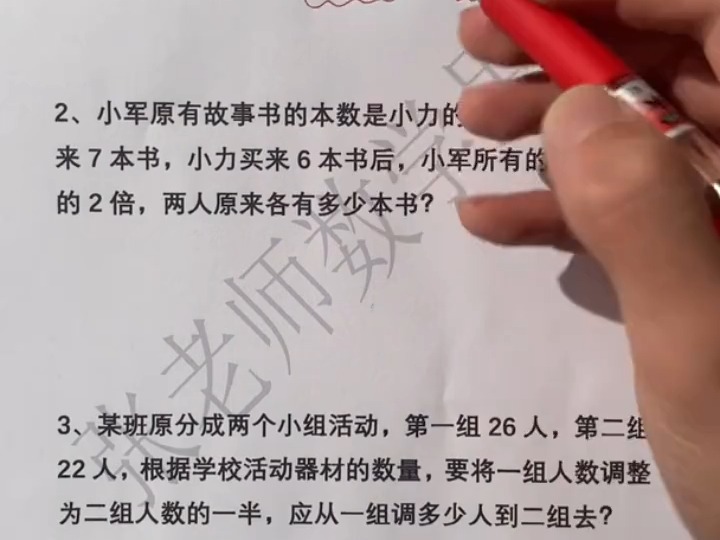 2、小军原有故事书的本数是小力的
来7本书，小力买来6本书后，小军所有的
的2倍，两人原来各有多少本书?
张老师数学
3、某班原分成两个小组活动，第一组26人，第二组
22人，根据学校活动器材的数量，要将一组人数调整
为二组人数的一半，应从一组调多少人到二组去?